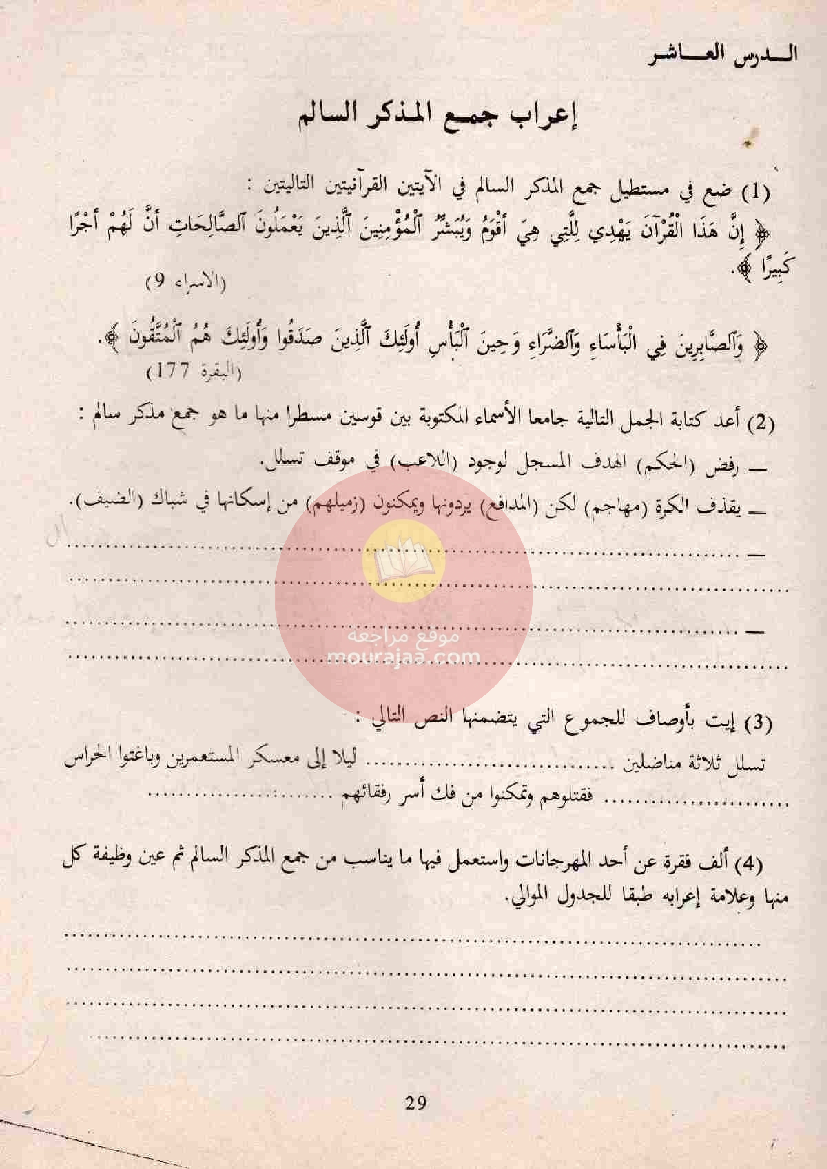 الـدرس العـاشر
إعراب جمـع المـذكر السالم
(1) ضع في مستطيل جمع المذكر السالم في الآيتين القرآنيتين التاليتين :
﴿ إِنَّ هَذَا الْقُرْآنَ يَهْدِي لِلَّتِي هِيَ أَقْوَمُ وَيُبَشِّرُ الْمُؤْمِنِينَ الَّذِينَ يَعْمَلُونَ الصَّالِحَاتِ أَنَّ لَهُمْ أَجْرًا
كَبِيرًا ﴾.
(الاسراء 9)
﴿ وَالصَّابِرِينَ فِي الْبَأْسَاءِ وَالضَّرَاءِ وَحِينَ الْبَأْسِ أُولَئِكَ الَّذِينَ صَدَقُوا وَأُولَئِكَ هُمُ الْمُتَّقُونَ ﴾.
(البقرة 177)
(2) أعد كتابة الجمل التالية جامعا الأسماء المكتوبة بين قوسين مسطرا منها ما هو جمع مذكر سالم :
— رفض (الحكم) الهدف المسجل لوجود (اللاعب) في موقف تسلل.
— يقذف الكرة (مهاجم) لكن (المدافع) يردونها ويمكنون (زميلهم) من إسكانها في شباك (الضيف).
— ........................................
........................................
— ........................................
موقع مراجعة
mourajaa.com
........................................
(3) إيت بأوصاف للجموع التي يتضمنها النص التالي :
تسلل ثلاثة مناضلين ................................ ليلا إلى معسكر المستعمرين وباغتوا الحراس
........................ فقتلوهم وتمكنوا من فك أسر رفقائهم ........................
(4) ألف فقرة عن أحد المهرجانات واستعمل فيها ما يناسب من جمع المذكر السالم ثم عين وظيفة كل
منها وعلامة إعرابه طبقا للجدول الموالي.
........................................
........................................
........................................
........................................
29